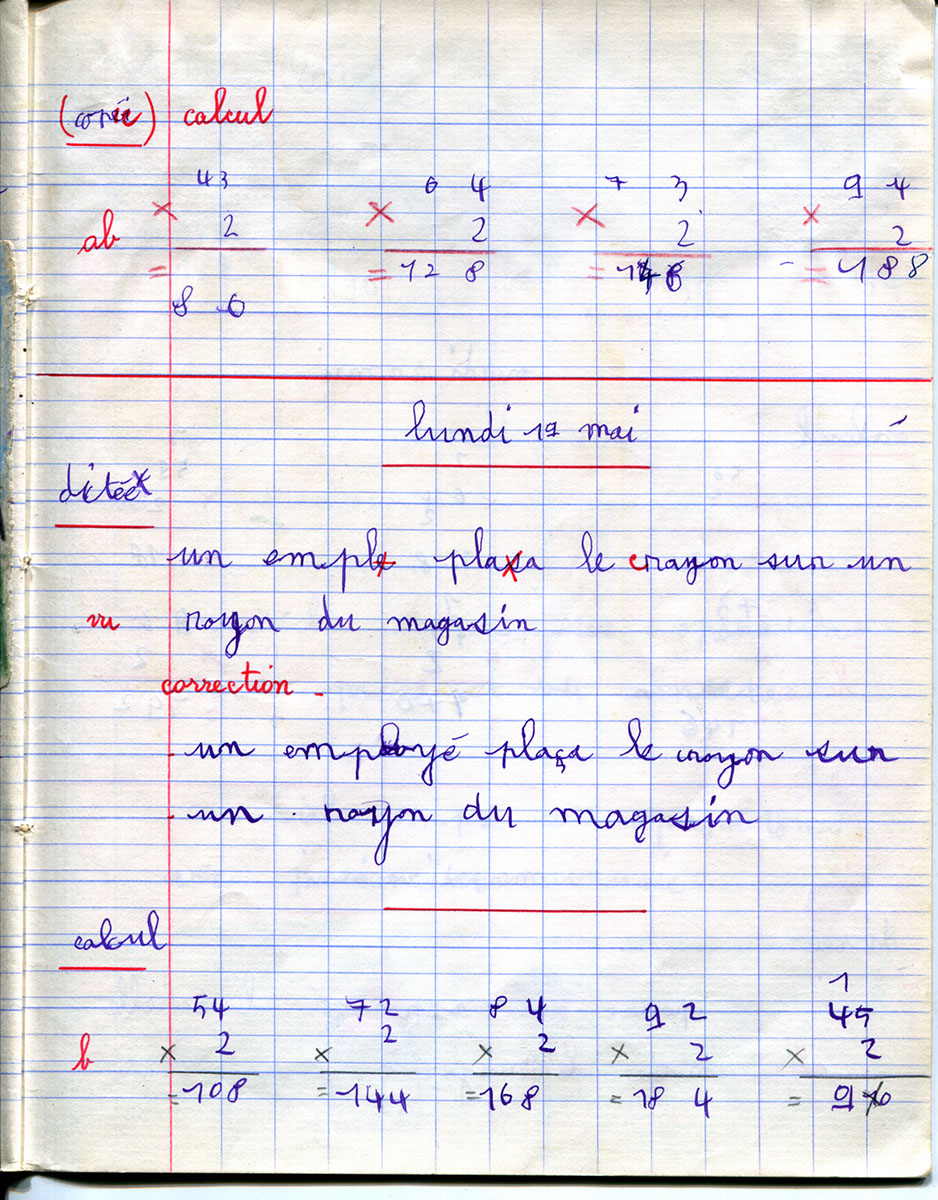 (copie) calcul
43 6 4 7 3 9 4
ab × 2 × 2 × 2 × 2
= = 12 8 = 146 = 188
8 6
lundi 19 mai
dictée
un emple plassa le crayon sur un
vu rayon du magasin
correction -
un employé plaça le crayon sur
un rayon du magasin
calcul
1
54 72 8 4 9 2 45
b × 2 × 2 × 2 × 2 × 2
= 108 = 144 = 168 = 18 4 = 90